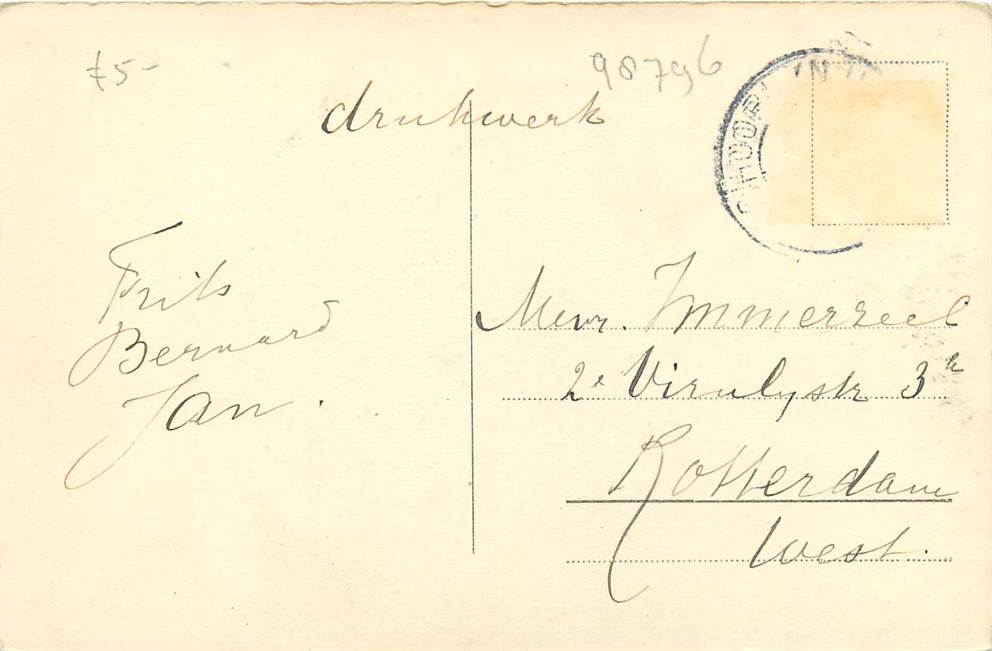 f5-
98796
drukwerk
Frits
Bernard
Jan.
Mevr. Immerzeel
2e Virulystr 3b
Rotterdam
West.